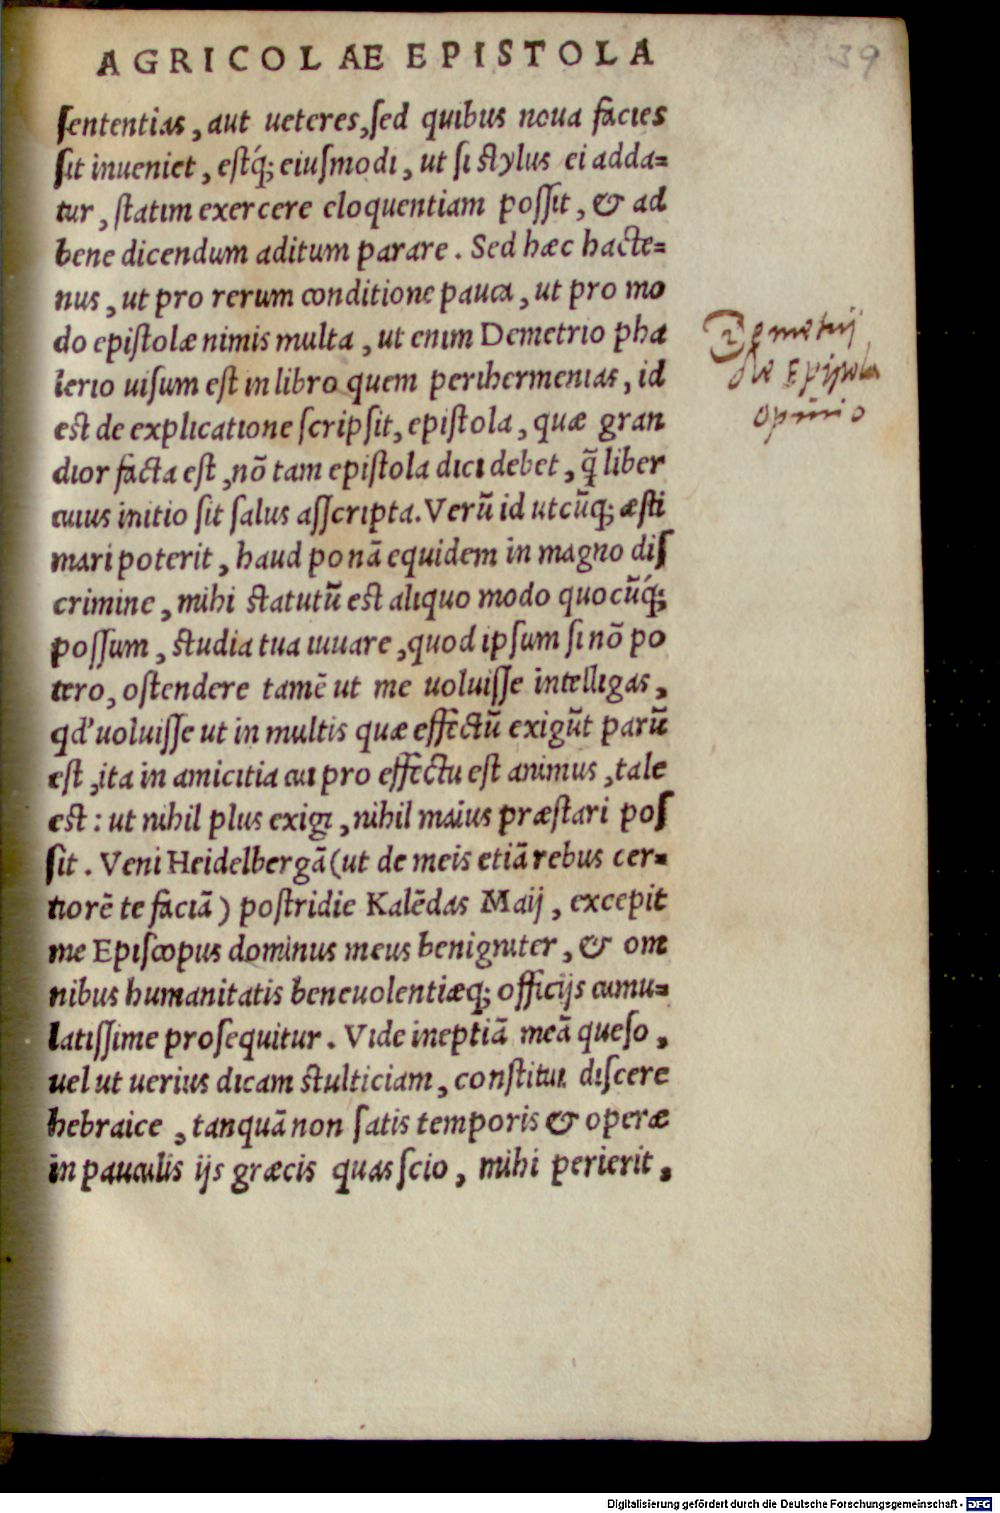 AGRICOLAE EPISTOLA
39
ſententias, aut ueteres, ſed quibus noua facies
ſit inueniet, eſtq́; eiuſmodi, ut ſi ſtylus ei adda=
tur, ſtatim exercere eloquentiam poſſit, & ad
bene dicendum aditum parare. Sed hæc hacte=
nus, ut pro rerum conditione pauca, ut pro mo
do epiſtolæ nimis multa, ut enim Demetrio pha
lerio uiſum eſt in libro quem perihermenias, id
eſt de explicatione ſcripſit, epiſtola, quæ gran
dior facta eſt, nō tam epiſtola dici debet, q̄ liber
cuius initio ſit ſalus aſſcripta. Verū id utcūq; æſti
mari poterit, haud ponā equidem in magno diſ
crimine, mihi ſtatutū eſt aliquo modo quocūq́;
poſſum, ſtudia tua iuuare, quod ipſum ſi nō po
tero, oſtendere tamē ut me uoluiſſe intelligas,
qd' uoluiſſe ut in multis quæ effectū exigūt parū
eſt, ita in amicitia cui pro effectu eſt animus, tale
eſt: ut nihil plus exigi, nihil maius præſtari poſ
ſit. Veni Heidelbergā (ut de meis etiā rebus cer=
tiorē te faciā) poſtridie Kalēdas Maij, excepit
me Epiſcopus dominus meus benigniter, & om
nibus humanitatis beneuolentiæq; officijs cumu=
latiſſime proſequitur. Vide ineptiā meā queſo,
uel ut uerius dicam ſtulticiam, conſtitui diſcere
hebraice, tanquā non ſatis temporis & operæ
in pauculis ijs græcis quas ſcio, mihi perierit,
Demetrij
de Epiſtola
opinio
Digitalisierung gefördert durch die Deutsche Forschungsgemeinschaft - DFG